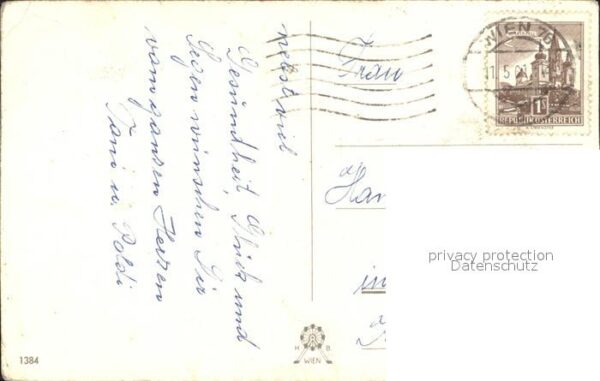 nebst viel
Gesundheit, Glück und
Segen wünschen Dir
vom ganzen Herzen
Toni u. Poldi
Frau
Han
in
WIEN 76
11.5.60
1S
REPUBLIK ÖSTERREICH
privacy protection
Datenschutz
H B
WIEN
1384